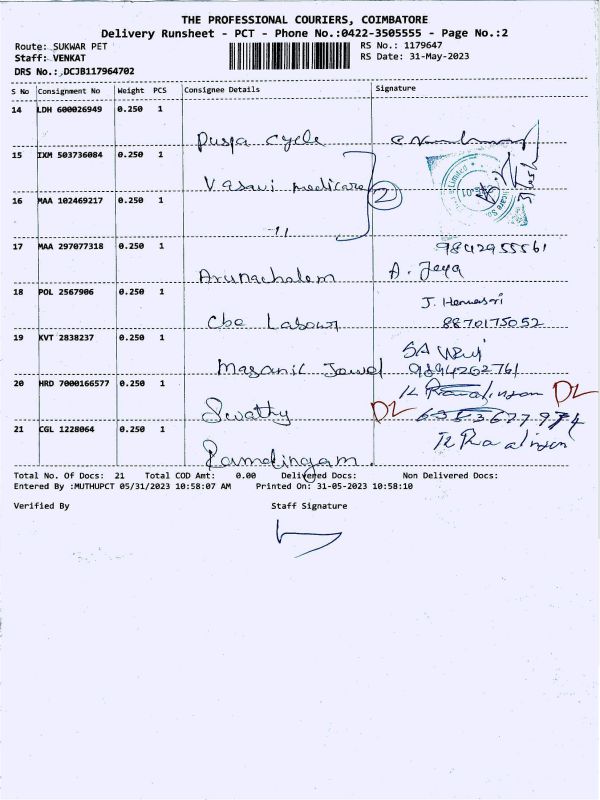 THE PROFESSIONAL COURIERS, COIMBATORE
Delivery Runsheet - PCT - Phone No.:0422-3505555 - Page No.:2
Route: SUKWAR PET RS No.: 1179647
Staff: VENKAT RS Date: 31-May-2023
DRS No.: DCJB117964702
S No Consignment No Weight PCS Consignee Details Signature
14 LDH 600026949 0.250 1
Puspa cycle
15 IXM 503736084 0.250 1
Vasavi medicare 2
16 MAA 102469217 0.250 1
-11-
17 MAA 297077318 0.250 1 9842955561
Arunachalam A. Jeya
18 POL 2567906 0.250 1
Cbe Labour 8870175052
19 KVT 2838237 0.250 1
9894262761
20 HRD 7000166577 0.250 1 DL
Swathy DL
21 CGL 1228064 0.250 1
Ramalingam.
Total No. Of Docs: 21 Total COD Amt: 0.00 Delivered Docs: Non Delivered Docs:
Entered By :MUTHUPCT 05/31/2023 10:58:07 AM Printed On: 31-05-2023 10:58:10
Verified By Staff Signature